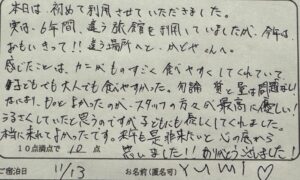 本日は、初めて利用させていただきました。
実は、6年間、違う旅館を利用していましたが、今年は
おもいきって!!違う場所へと…かどやさんへ。
感じたことは、カニがものすごく食べやすくしてくれていて、
子どもでも大人でも食べやすかった。勿論 質と量は問題なし!
なにより、もっとよかったのが、スタッフの方々が最高に優しい!
うるさくしていたと思うのですが子どもにも優しくしてくれました。
本当に来れてよかったです。来年も是非来たいと心の底から
思いました!!ありがとうございました!
10点満点で 10 点
ご宿泊日 11/13 お名前(匿名可) YUMI♡